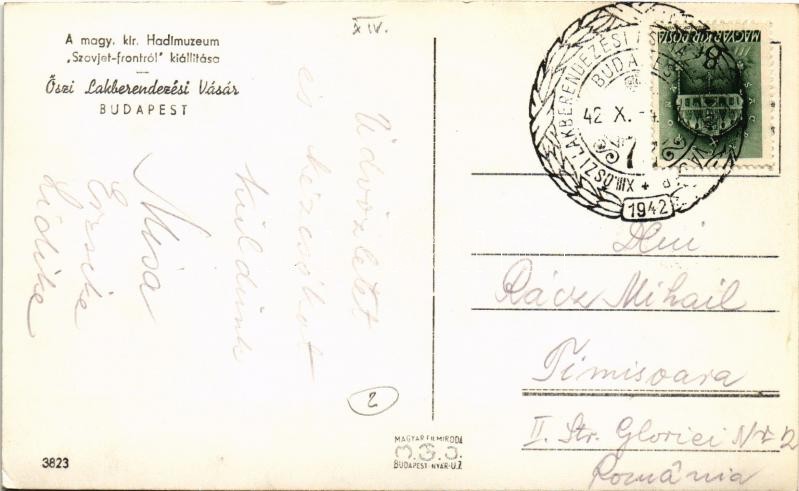 A magy. kir. Hadimuzeum
„Szovjet-frontról" kiállítása
Őszi Lakberendezési Vásár
BUDAPEST
XIV.
Üdvözletet
és kézcsókot
küldünk
Misa
Erzsike
Lidike
2
3823
MAGYAR FILMIRODA
BUDAPEST-NYÁR-U.7.
XIII. ŐSZI LAKBERENDEZÉSI
BUDA
42 X.
1942
MAGYAR KIR. POSTA
Dlui
Rácz Mihail
Timisoara
II. Str. Gloriei Nr 2
România